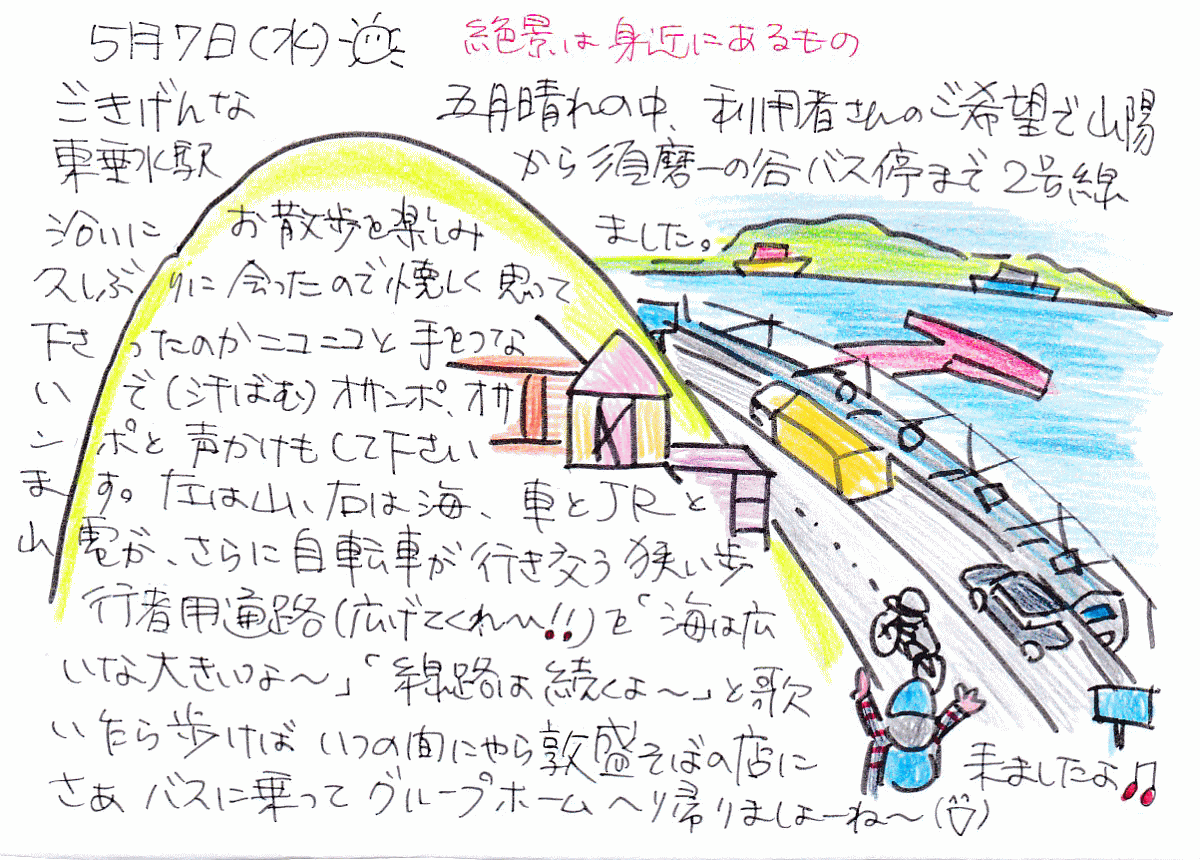 5月7日(水)
絶景は身近にあるもの
ごきげんな 五月晴れの中、利用者さんのご希望で山陽
東垂水駅 から須磨一の谷バス停まで2号線
沿いに お散歩を楽しみ ました。
久しぶりに会ったので懐しく思って
下さったのかニコニコと手をつな
いで(汗ばむ)オサンポ、オサ
ンポと声かけもして下さい
ます。左は山、右は海、車とJRと
山電が、さらに自転車が行き交う狭い歩
行者用通路(広げてくれ〜い!!)を「海は広
いな大きいよ〜」「線路は続くよ〜」と歌
いたら歩けば いつの間にやら敦盛そばの店に
来ましたよ♫
さあ バスに乗って グループホームへり帰りましょーね〜